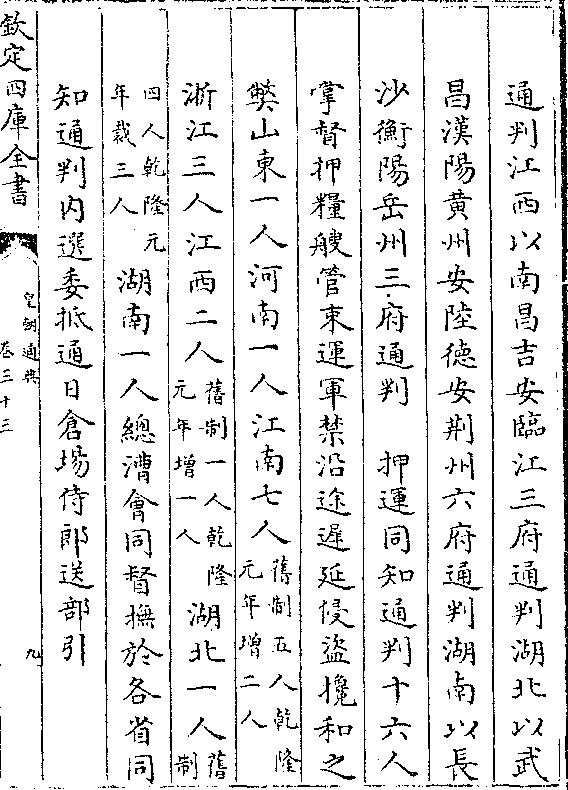 通判江西以南昌吉安臨江三府通判湖北以武
昌漢陽黄州安陸德安荆州六府通判湖南以長
沙衡陽岳州三府通判　押運同知通判十六人
掌督押糧艘管束運軍禁沿途遲延侵盜攙和之
弊山東一人河南一人江南七人舊制五人乾隆元年增二人
浙江三人江西二人舊制一人乾隆元年增一人湖北一人舊制
四人乾隆元年裁三人湖南一人總漕會同督撫於各省同
知通判内選委抵通日倉場侍郎送部引
欽定四庫全書
皇朝通典
卷三十三
九